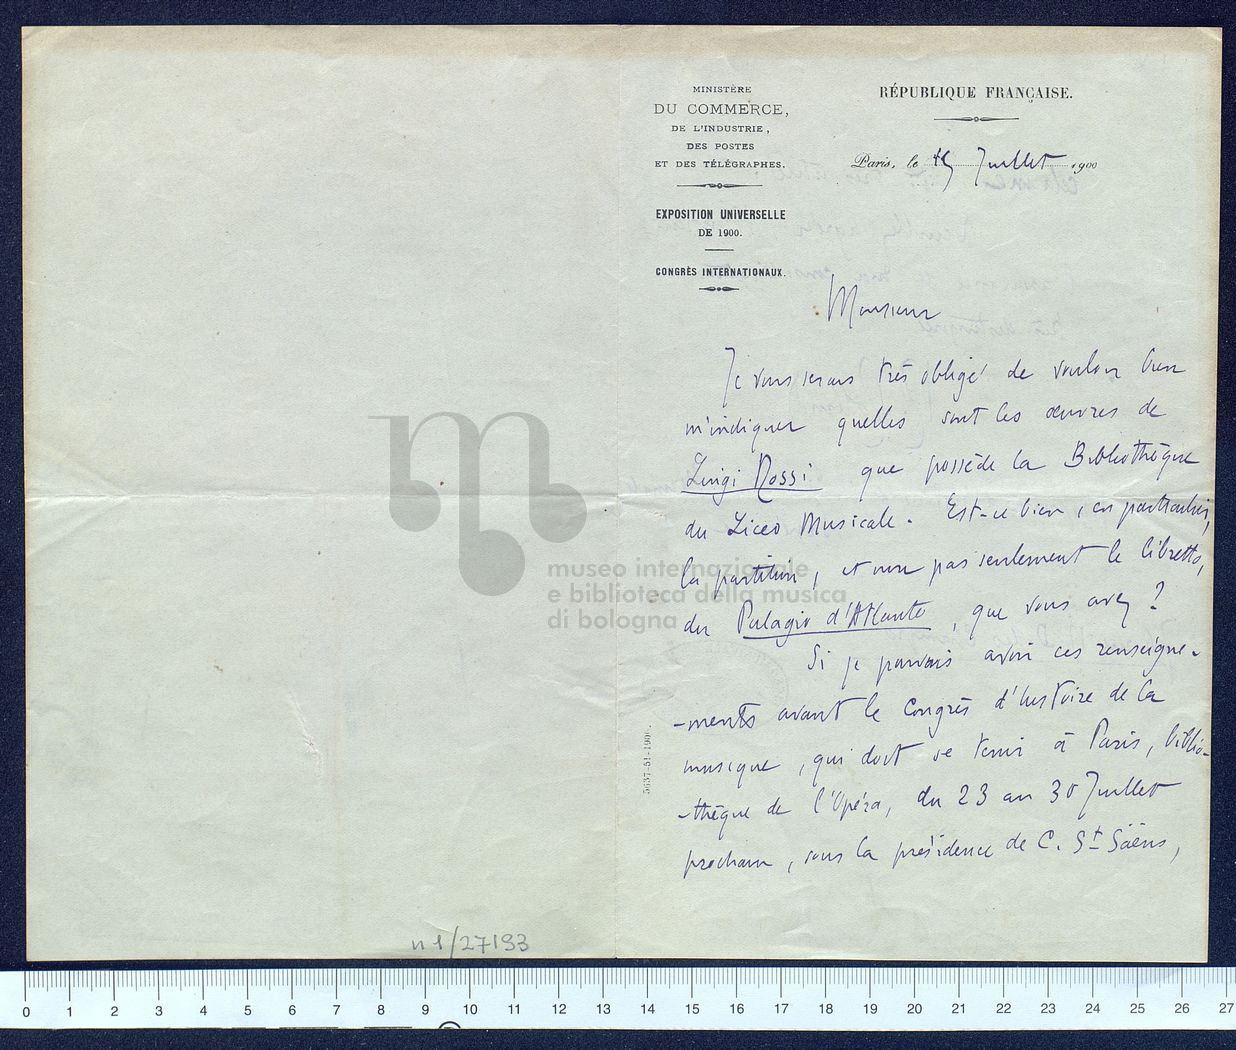 MINISTÈRE
DU COMMERCE,
DE L'INDUSTRIE,
DES POSTES
ET DES TÉLÉGRAPHES.
EXPOSITION UNIVERSELLE
DE 1900.
CONGRÈS INTERNATIONAUX.
RÉPUBLIQUE FRANÇAISE.
Paris, le 15 Juillet 1900
Monsieur
Je vous serais très obligé de vouloir bien
m'indiquer quelles sont les œuvres de
Luigi Rossi que possède la Bibliothèque
du Liceo Musicale. Est-ce bien, en particulier,
la partition, et non pas seulement le libretto,
du Palagio d'Atlante, que vous avez ?
Si je pouvais avoir ces renseigne-
-ments avant le Congrès d'histoire de la
musique, qui doit se tenir à Paris, biblio-
-thèque de l'Opéra, du 23 au 30 Juillet
prochain, sous la présidence de C. St Saëns,
5637-51-1900.
n 1/27193
museo internazionale
e biblioteca della musica
di bologna
0 1 2 3 4 5 6 7 8 9 10 11 12 13 14 15 16 17 18 19 20 21 22 23 24 25 26 27